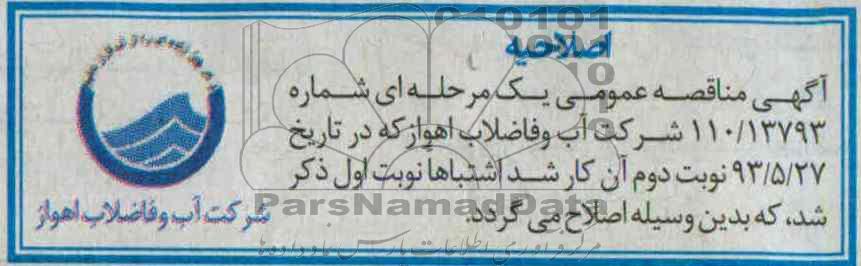 اصلاحیه
آگهی مناقصه عمومی یک مرحله ای شماره
۱۱۰/۱۳۷۹۳ شرکت آب وفاضلاب اهواز که در تاریخ
۹۳/۵/۲۷ نوبت دوم آن کار شد اشتباها نوبت اول ذکر
شد، که بدین وسیله اصلاح می گردد.
شرکت آب وفاضلاب اهواز
ParsNamadData
مرکز فرآوری اطلاعات پارس نماد داده‌ها